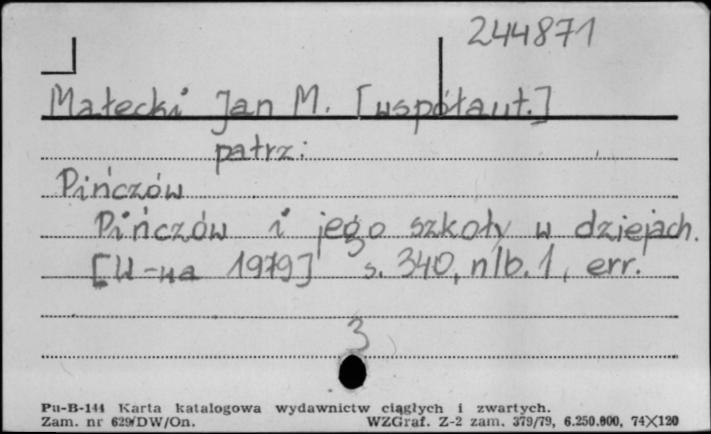 244871
Małecki Jan M. [współaut.]
patrz:
Pińczów
Pińczów i jego szkoły w dziejach.
[W-wa 1979] s. 340, nlb. 1, err.
3
Pu-B-144 Karta katalogowa wydawnictw ciągłych i zwartych.
Zam. nr 629/DW/On. WZGraf. Z-2 zam. 379/79, 6.250.000, 74X120